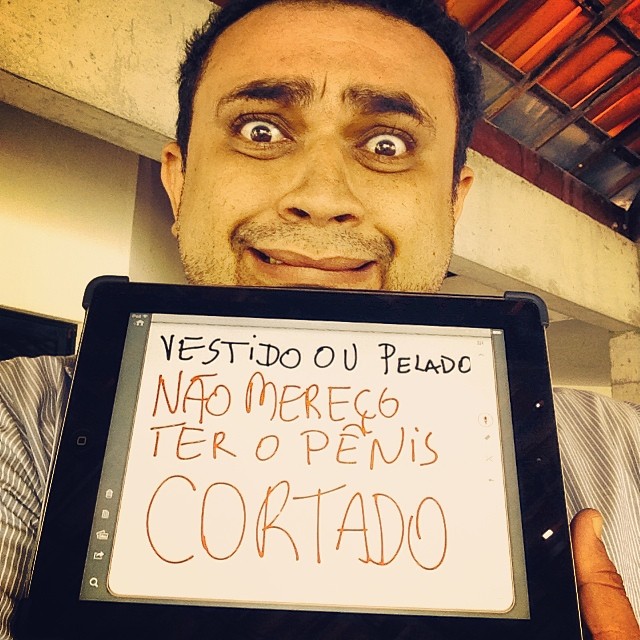 VESTiDO OU PELADO
NÃO MEREÇO
TER O PÊNiS
CORTADO